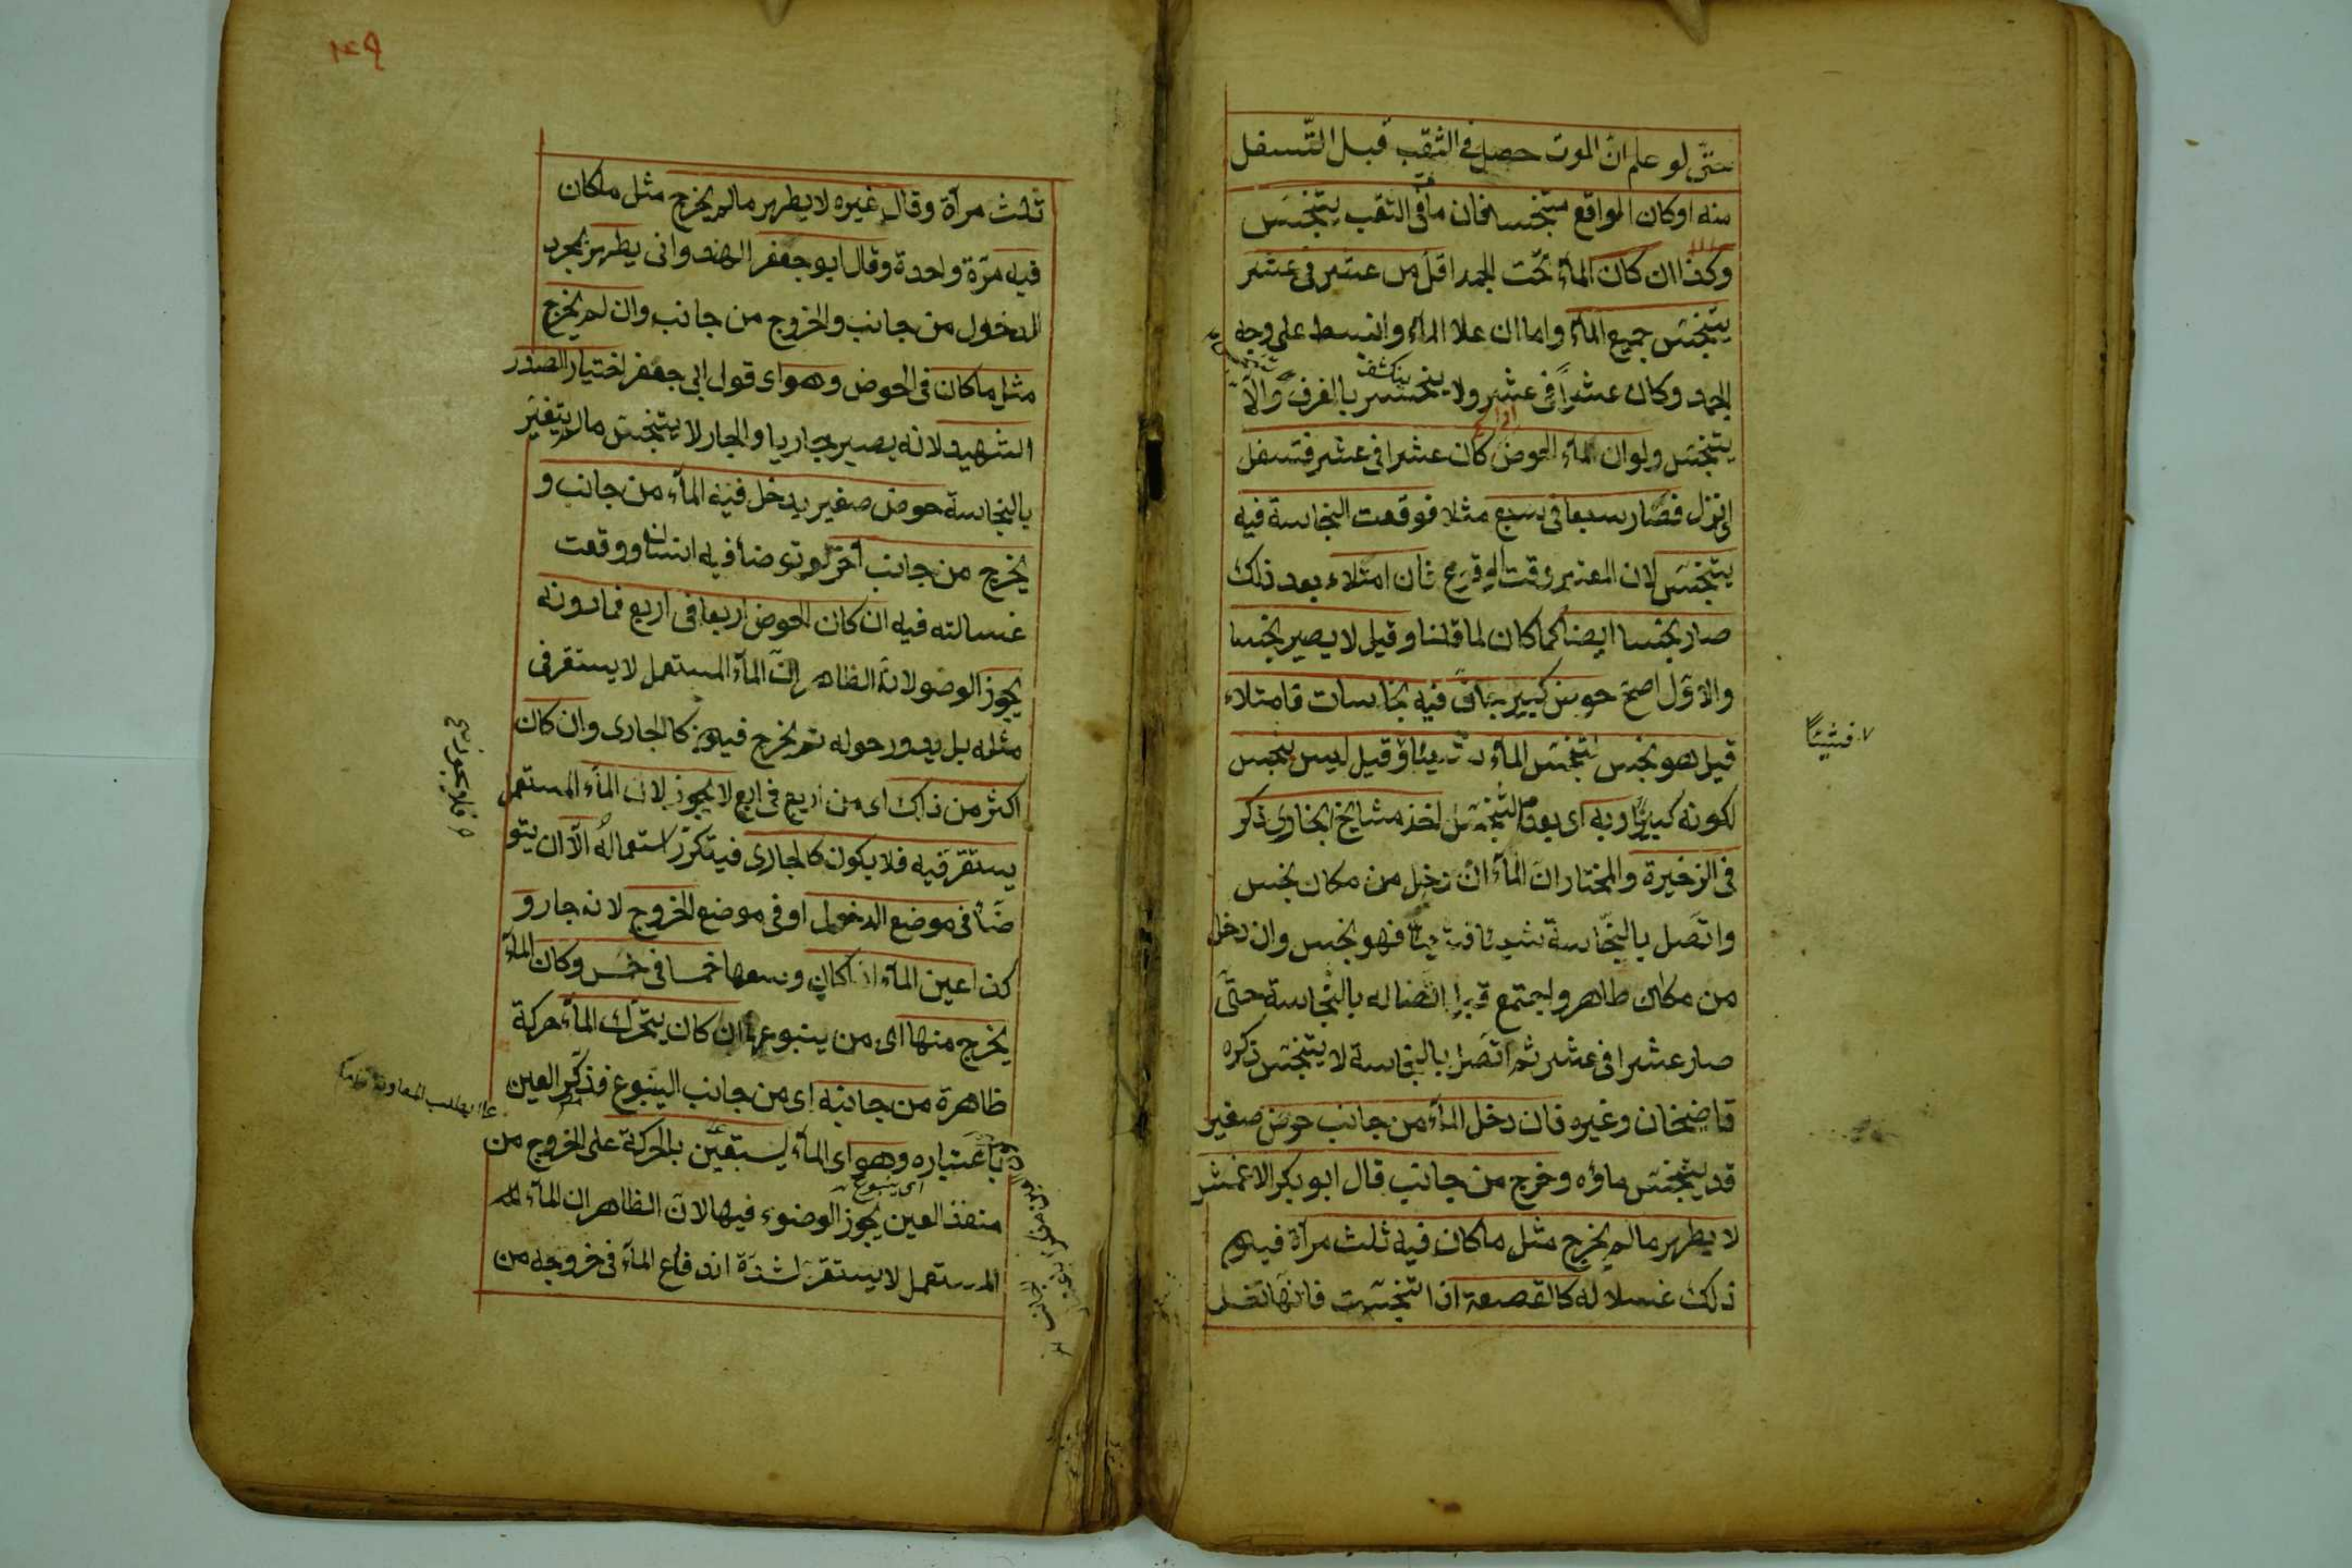 حتى لو علم ان الموت حصل فى الثقب قبل التسفل
منه اوكان الواقع متنجسا فان ما فى الثقب يتنجس
وكذا ان كان المآء تحت الجمد اقل من عشر فى عشر
يتنجس جميع المآء واما ان علا المآء وانبسط على وجه
الجمد وكان عشرا فى عشر ولا ينكشف بالغرف والا
يتنجس ولو ان المآء الحوض كان عشرا فى عشر فتسفل
اى نزل فصار سبعا فى سبع مثلا فوقعت النجاسة فيه
يتنجس لان المعتبر وقت الوقوع فان امتلاء بعد ذلك
صار نجسا ايضا كما كان لما قلنا وقيل لا يصير نجسا
والاول اصح حوض كبير فيه نجاسات فامتلاء
قيل هو نجس لتنجس المآء وقيل ليس بنجس
لكونه كبيرا وبه اى بعدم التنجس اخذ مشايخ بخارى ذكر
فى الزخيرة والمختار ان المآء ان دخل من مكان نجس
واتصل بالنجاسة شيئا فشيئا فهو نجس وان دخل
من مكان طاهر واجتمع قبل اتصاله بالنجاسة حتى
صار عشرا فى عشر ثم اتصل بالنجاسة لا يتنجس ذكره
قاضيخان وغيره فان دخل المآء من جانب حوض صغير
قد يتنجس ماؤه وخرج من جانب قال ابو بكر الاعمش
لا يطهر مالم يخرج مثل ماكان فيه ثلث مرآة فيكون
ذلك غسلا له كالقصعة اذا تنجست فانها تغسل
فشيئا
١٤٩
ثلث مرآة وقال غيره لا يطهر مالم يخرج مثل ماكان
فيه مرة واحدة وقال ابو جعفر الهندوانى يطهر بمجرد
الدخول من جانب والخروج من جانب وان لم يخرج
مثل ماكان فى الحوض وهو اى قول ابى جعفر اختيار الصدر
الشهيد لانه يصير جاريا والجار لا يتنجس مالم يتغير
بالنجاسة حوض صغير يدخل فيه المآء من جانب و
يخرج من جانب آخر لو توضأ فيه انسان ووقعت
غسالته فيه ان كان الحوض اربعا فى اربع فما دونه
يجوز الوضو لانه الظاهر ان المآء المستعمل لا يستقر فى
مثله بل يدور حوله ثم يخرج فيكون كالجارى وان كان
اكثر من ذلك اى من اربع فى اربع لا يجوز لان المآء المستعمل
يستقر فيه فلا يكون كالجارى فيتكرر استعماله الا ان يتو
ضأ فى موضع الدخول او فى موضع الخروج لانه جار و
كذا عين المآء اذا كان وسعها خمسا فى خمس وكان المآء
يخرج منها اى من ينبوعها ان كان يتحرك المآء حركة
ظاهرة من جانبه اى من جانب الينبوع فذكر العين
باعتباره وهو اى المآء يستعين بالحركة على الخروج من
اى ينبوع
منفذ العين يجوز الوضوء فيها لان الظاهر ان المآء
المستعمل لا يستقر لشدة اندفاع المآء فى خروجه من
فلا يجوز